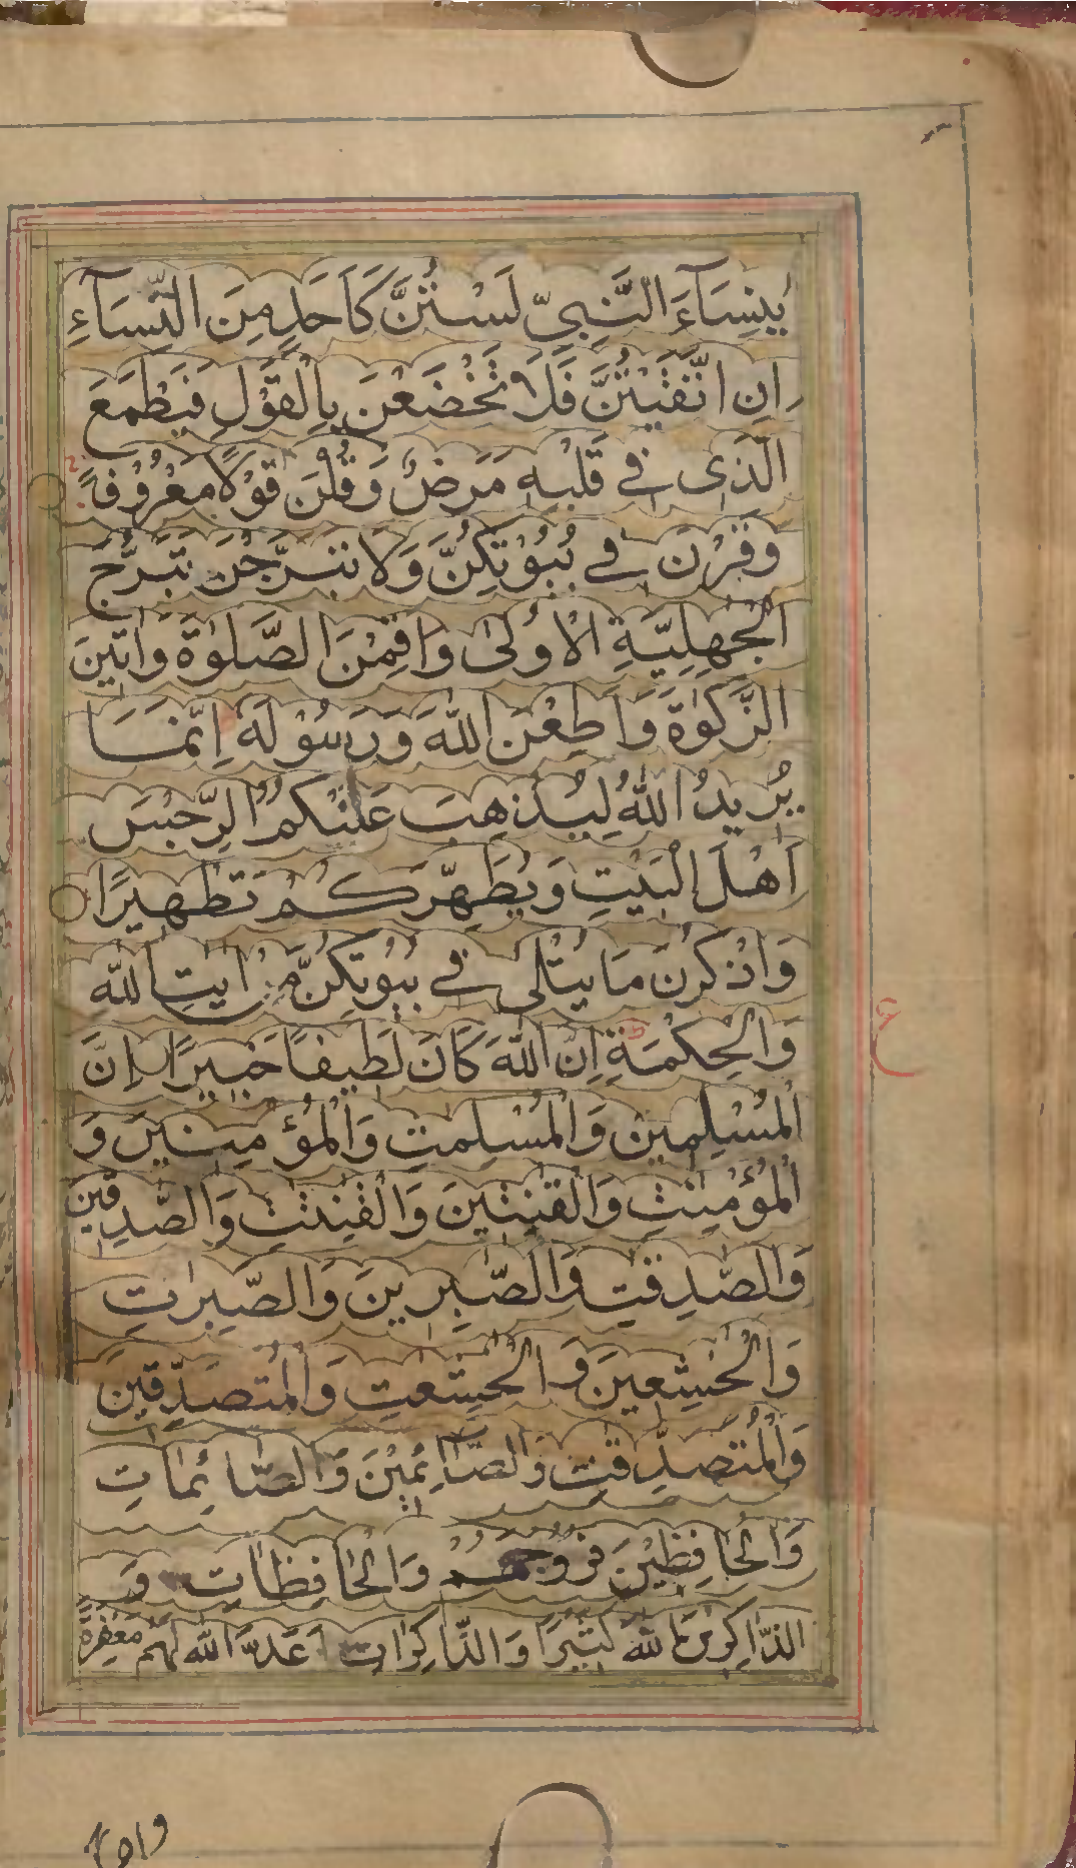 يٰنِسَآءَ النَّبِيِّ لَسْتُنَّ كَاَحَدٍ مِنَ النِّسَآءِ
اِنِ اتَّقَيْتُنَّ فَلَا تَخْضَعْنَ بِالْقَوْلِ فَيَطْمَعَ
الَّذِى فِى قَلْبِهٖ مَرَضٌ وَقُلْنَ قَوْلًا مَعْرُوْفًا
وَقَرْنَ فِى بُيُوْتِكُنَّ وَلَا تَبَرَّجْنَ تَبَرُّجَ
الْجٰهِلِيَّةِ الْاُوْلىٰ وَاَقِمْنَ الصَّلٰوةَ وَاٰتِيْنَ
الزَّكٰوةَ وَاَطِعْنَ اللّٰهَ وَرَسُوْلَهٗ اِنَّمَا
يُرِيدُ اللّٰهُ لِيُذْهِبَ عَنْكُمُ الرِّجْسَ
اَهْلَ الْبَيْتِ وَيُطَهِّرَكُمْ تَطْهِيْرًا
وَاذْكُرْنَ مَا يُتْلىٰ فِى بُيُوْتِكُنَّ مِنْ اٰيٰتِ اللّٰهِ
وَالْحِكْمَةِ اِنَّ اللّٰهَ كَانَ لَطِيفًا خَبِيْرًا اِنَّ
الْمُسْلِمِيْنَ وَالْمُسْلِمٰتِ وَالْمُؤْمِنِيْنَ وَ
الْمُؤْمِنٰتِ وَالْقٰنِتِيْنَ وَالْقٰنِتٰتِ وَالصّٰدِقِيْنَ
وَالصّٰدِقٰتِ وَالصّٰبِرِيْنَ وَالصّٰبِرٰتِ
وَالْخٰشِعِيْنَ وَالْخٰشِعٰتِ وَالْمُتَصَدِّقِيْنَ
وَالْمُتَصَدِّقٰتِ وَالصَّآئِمِيْنَ وَالصَّائِمَاتِ
وَالْحَافِظِيْنَ فُرُوْجَهُمْ وَالْحَافِظَاتِ وَ
الذَّاكِرِيْنَ اللّٰهَ كَثِيْرًا وَالذَّاكِرَاتِ اَعَدَّ اللّٰهُ لَهُمْ مَغْفِرَةً
ع